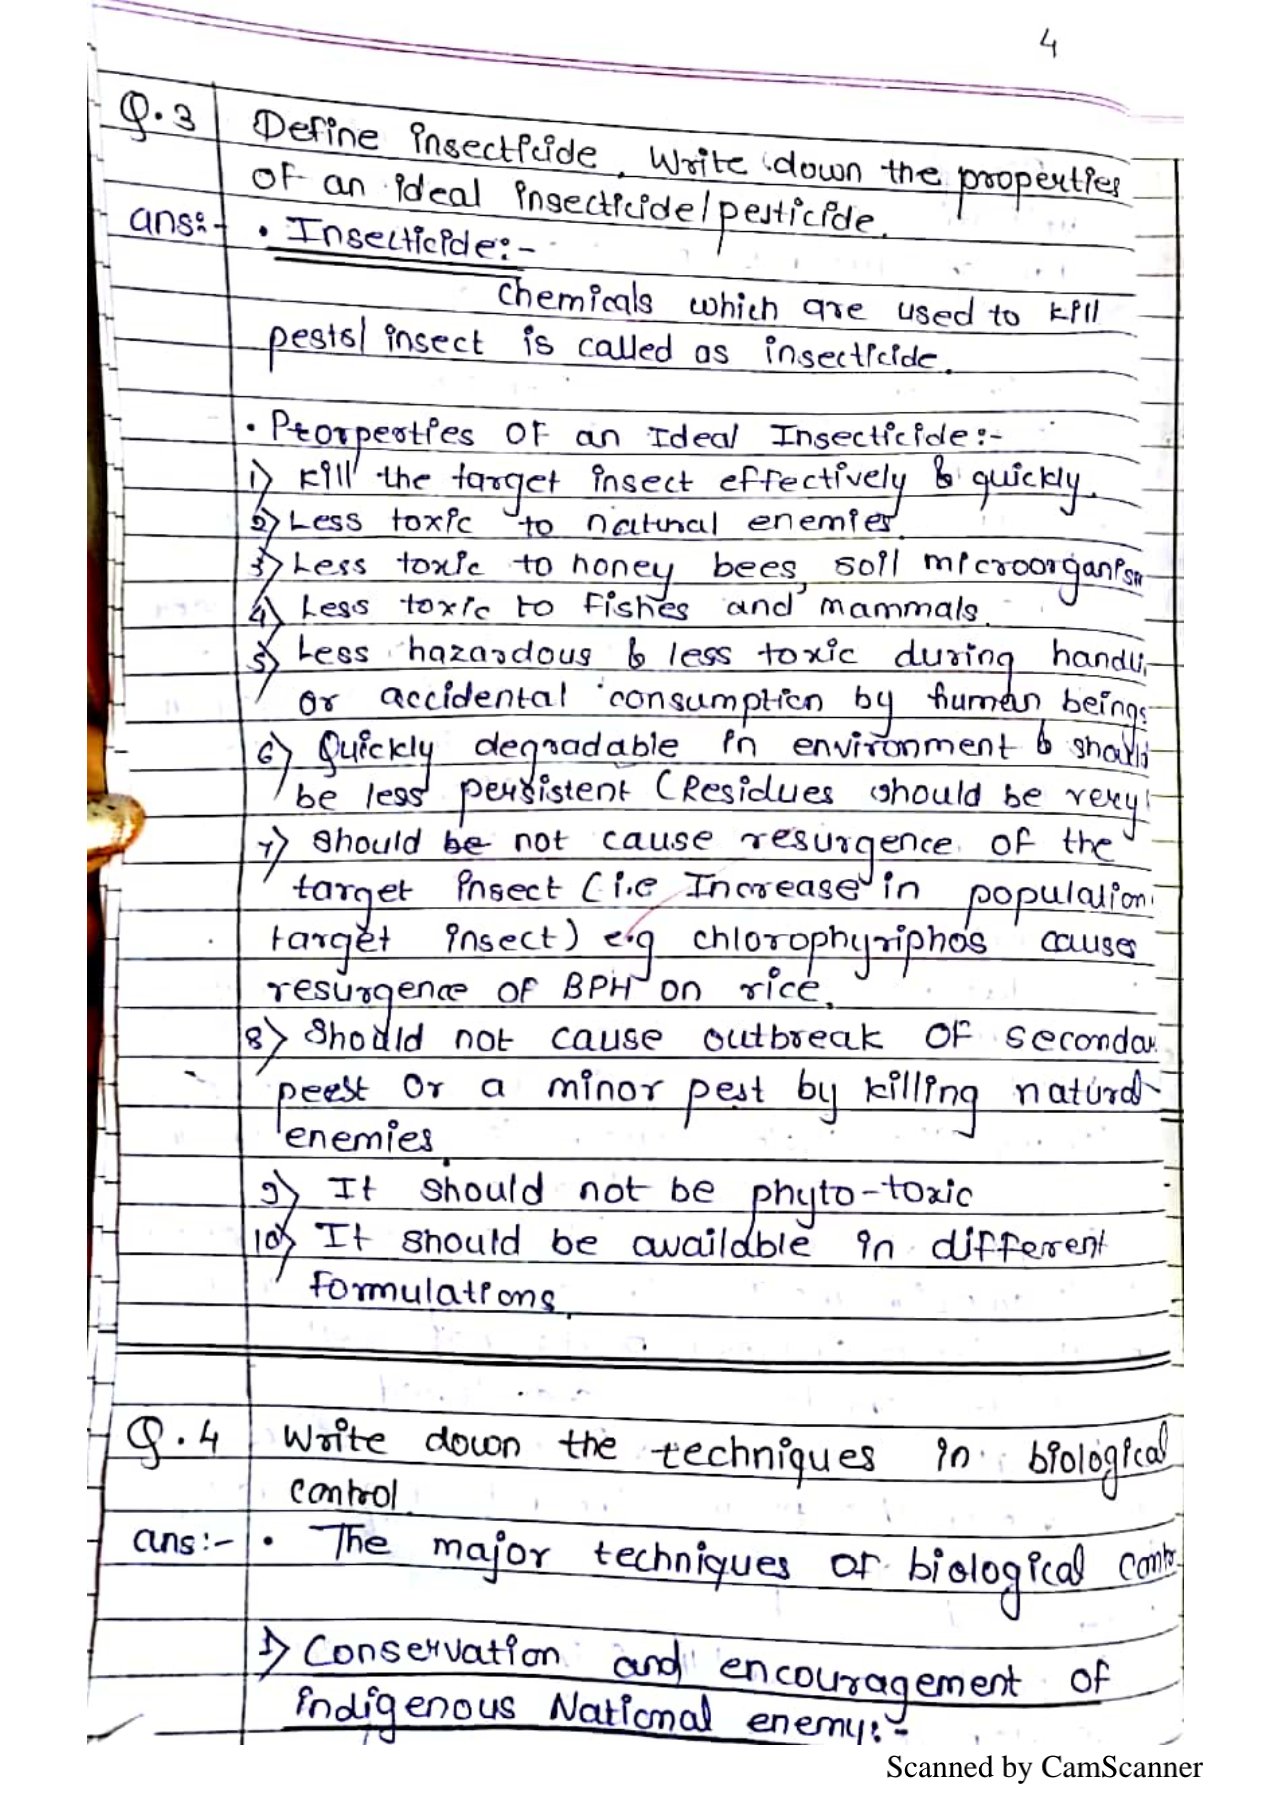 4
Q.3 Define insecticide. Write down the properties
of an ideal insecticide/pesticide.
ans:- • Insecticide:-
Chemicals which are used to kill
pests/ insect is called as insecticide.
• Prorperties of an Ideal Insecticide:-
1) Kill the target insect effectively & quickly.
2) Less toxic to natural enemies.
3) Less toxic to honey bees, soil microorganism
4) Less toxic to fishes and mammals.
5) Less hazardous & less toxic during handli
or accidental consumption by human beings
6) Quickly degradable in environment & should
be less persistent (Residues should be very
7) should be not cause resurgence of the
target insect (i.e Increase in population
target insect) e.g chlorophyriphos causes
resurgence of BPH on rice.
8) Should not cause outbreak of seconda
pest or a minor pest by killing natural
enemies.
9) It should not be phyto-toxic
10) It should be available in different
formulations.
Q.4 Write down the techniques in biological
control.
ans:- • The major techniques of biological contr
1) Conservation and encouragement of
indigenous National enemy:-
Scanned by CamScanner